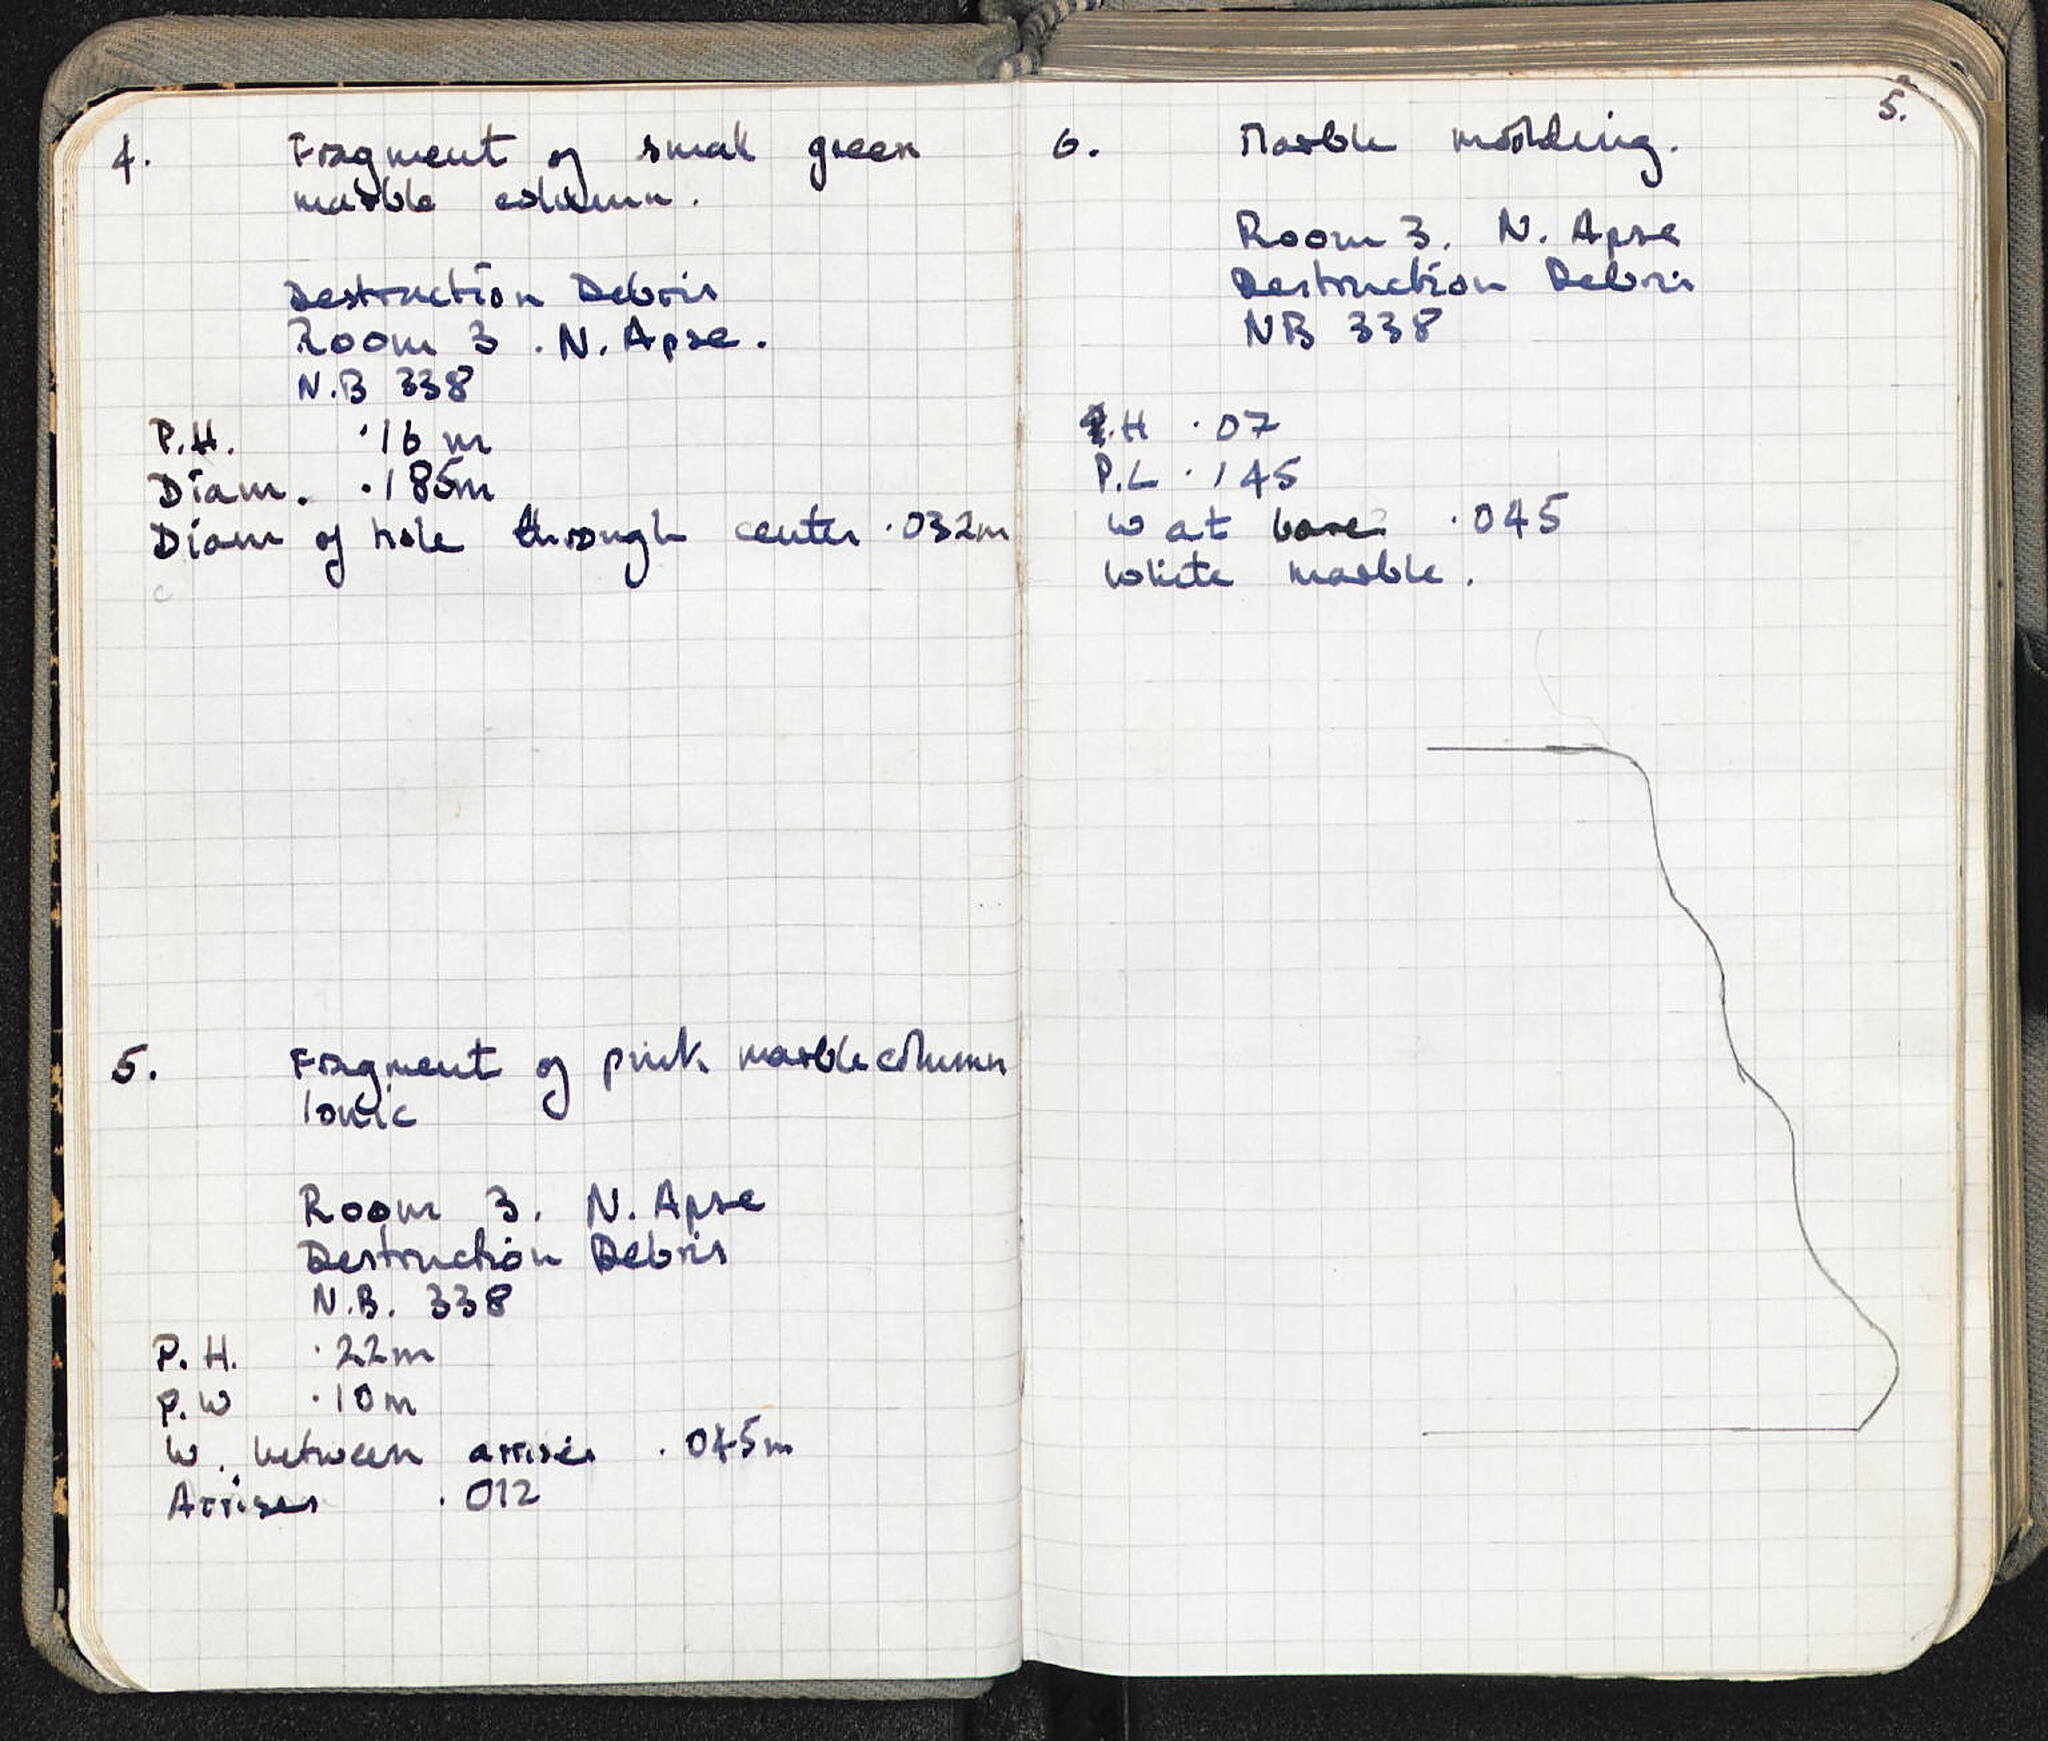 4. Fragment of small green
marble column.
Destruction Debris
Room 3 . N. Apse.
N.B 338
P.H. .16 m
Diam. .185m
Diam of hole through center .032m
5. Fragment of pink marble column
Ionic
Room 3. N. Apse
Destruction Debris
N.B. 338
P.H. .22m
P.W .10m
W. between arrises .045m
Arrises .012
5.
6. Marble moulding.
Room 3. N. Apse
Destruction Debris
NB 338
.H .07
P.L .145
W at base .045
White marble.